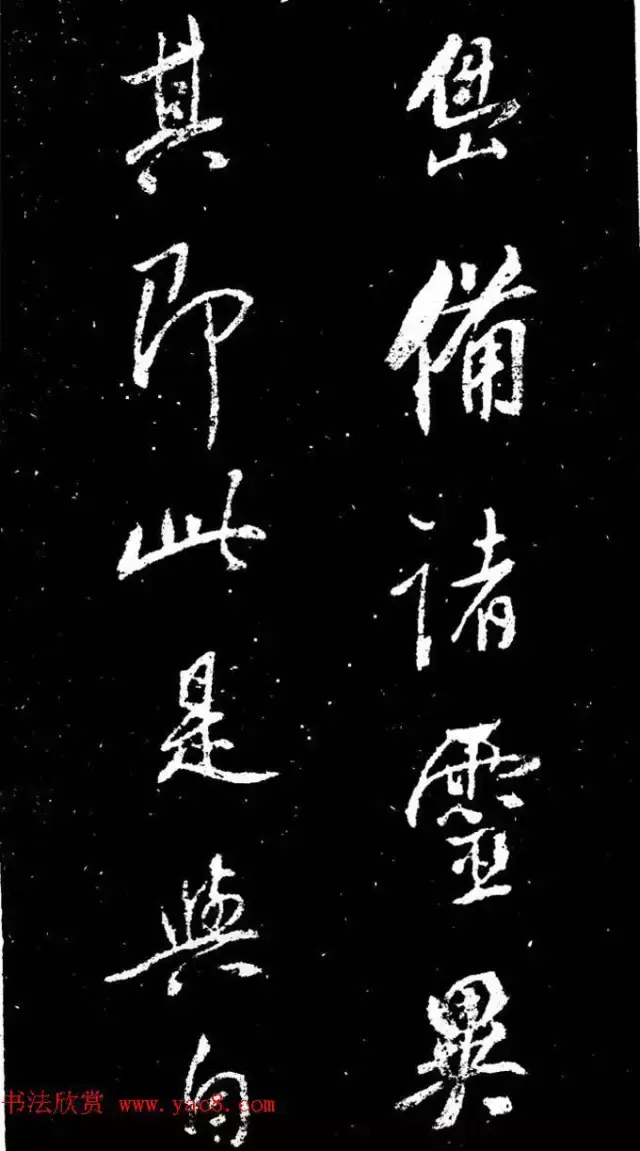 備諸靈異
其即此是與
書法欣赏 www.yac8.com